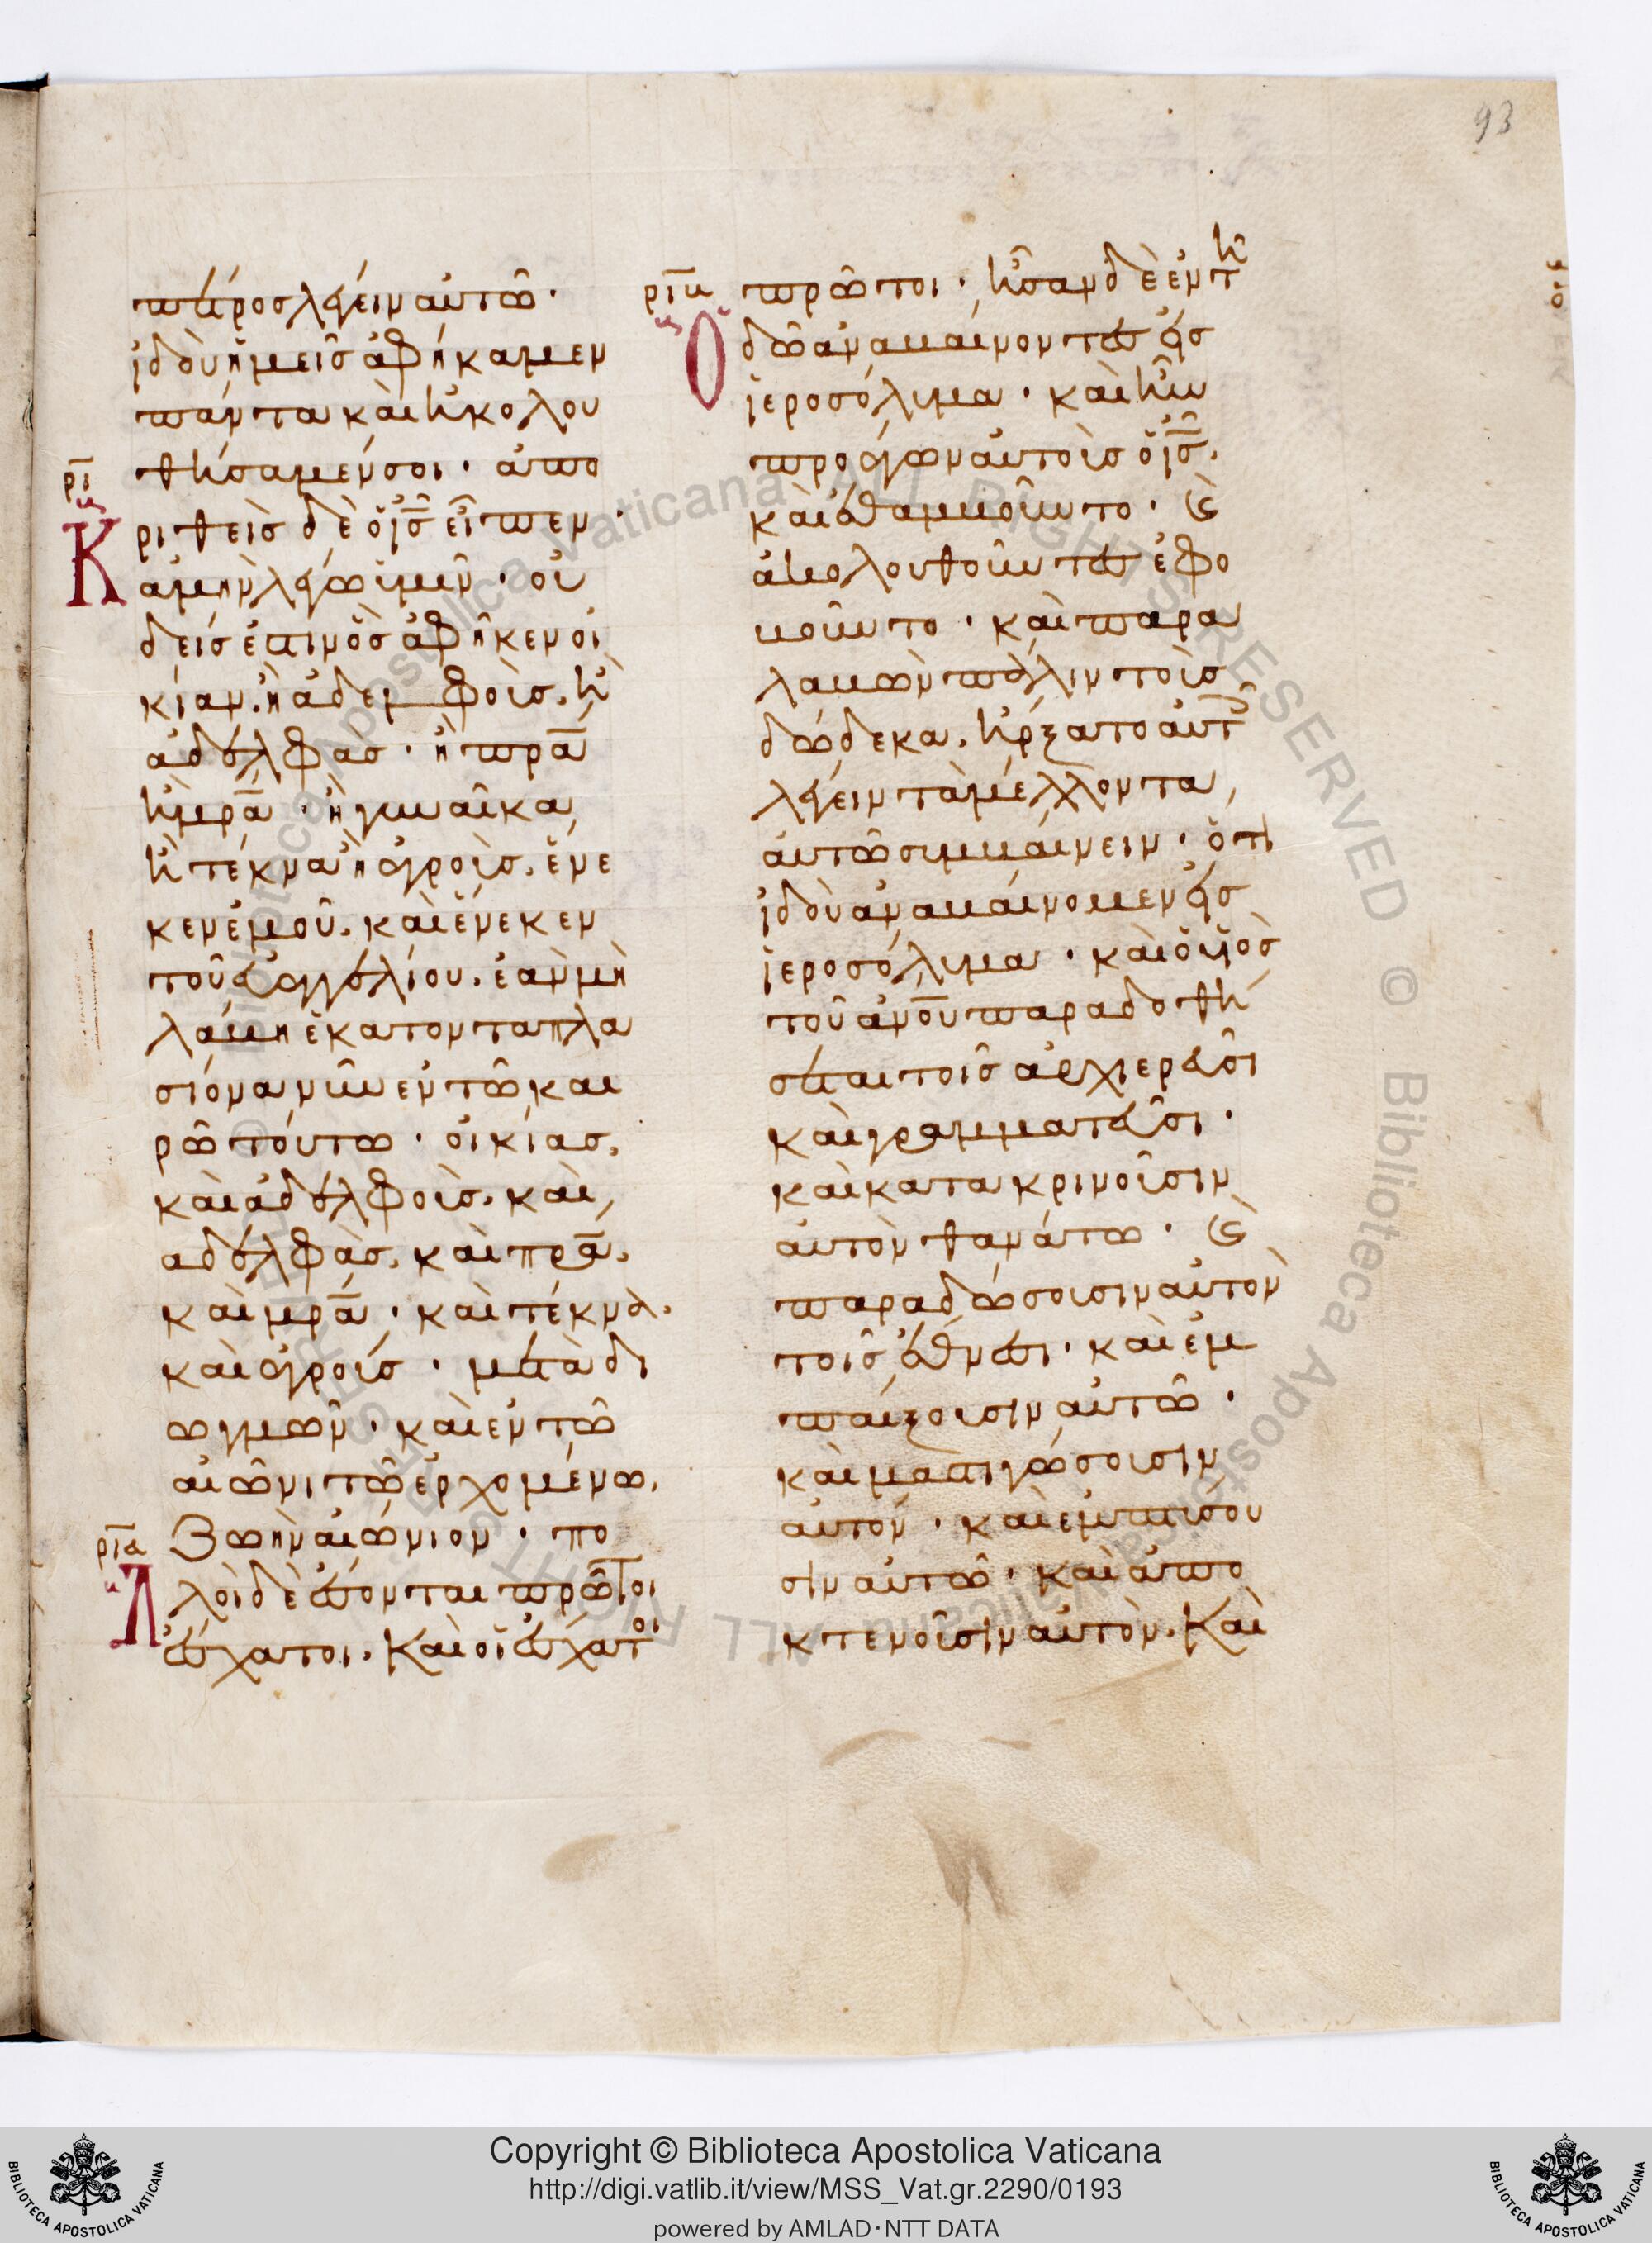 93
πέτρος λέγειν αὐτῶ·
ἰδοὺ ἡμεῖς ἀφήκαμεν
πάντα καὶ ἠκολου
θήσαμέν σοι· ἀπο
ρι
Κριθεὶς δὲ ὁ ις εἶπεν·
ἀμὴν λέγω ὑμῖν· οὐ
δείς ἐστιν ὃς ἀφῆκεν οἰ
κίαν. ἢ ἀδελφοὺς. ἢ
ἀδελφὰς· ἢ πρα
ἢ μρα· ἢ γυναῖκα
ἢ τέκνα ἢ ἀγροὺς. ἕνε
κεν ἐμοῦ. καὶ ἕνεκεν
τοῦ εὐαγγελίου. ἐὰν μὴ
λάβη ἑκατονταπλα
σίονα νῦν ἐν τῶ και
ρῶ τούτω· οἰκίας.
καὶ ἀδελφοὺς. καὶ
αδελφὰς. καὶ πρα.
καὶ μρα· καὶ τέκνα.
καὶ ἀγρούς· μετὰ δι
ωγμῶν· καὶ ἐν τῶ
αἰῶνι τῶ ἐρχομένω.
ζωὴν αἰώνιον· πο
ρια
Λλοὶ δὲ ἔσονται πρῶτοι
ἔσχατοι. Καὶ οἱ ἔσχατοι
ριβ
πρῶτοι· ἦσαν δὲ ἐν τῆ
Ὁδῶ ἀναβαίνοντες εἰς
ἱεροσόλυμα· καὶ ἦν
προάγων αὐτοὺς ὁ ις.
καὶ ἐθαμβοῦντο· καὶ
ἀκολουθοῦντες ἐφο
βοῦντο· καὶ παρα
λαβὼν πάλιν τοὺς
δώδεκα. ἤρξατο αὐτοῖς
λέγειν τὰ μέλλοντα
αὐτῶ συμβαίνειν· ὅτι
ἰδοὺ ἀναβαίνομεν εἰς
ἱεροσόλυμα· καὶ ὁ υἱὸς
τοῦ ανου παραδοθή
σεται τοῖς ἀρχιερεῦσι
καὶ γραμματεῦσι·
καὶ κατακρινοῦσιν
αὐτὸν θανάτω· καὶ
παραδώσουσιν αὐτὸν
τοῖς ἔθνεσι· καὶ ἐμ
παίξουσιν αὐτῶ·
καὶ μαστιγώσουσιν
αὐτόν· καὶ ἐμπτύσου
σιν αὐτῶ· καὶ ἀπο
κτενοῦσιν αὐτὸν. Καὶ
Copyright © Biblioteca Apostolica Vaticana
http://digi.vatlib.it/view/MSS_Vat.gr.2290/0193
powered by AMLAD·NTT DATA
BIBLIOTECA APOSTOLICA VATICANA
BIBLIOTECA APOSTOLICA VATICANA